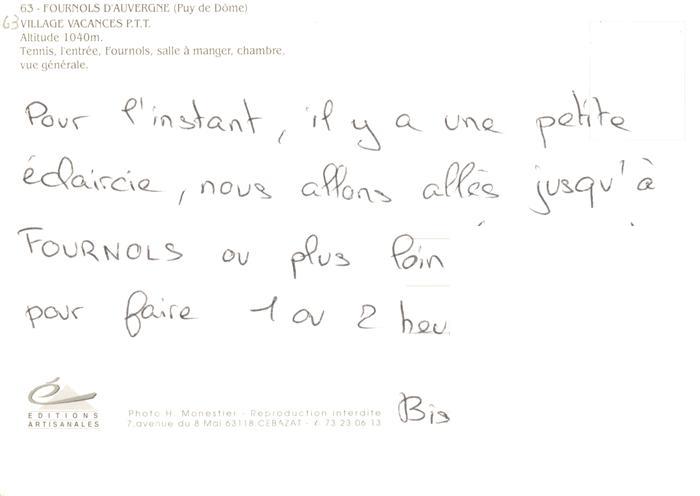 63 - FOURNOLS D'AUVERGNE (Puy de Dôme)
63 VILLAGE VACANCES P.T.T.
Altitude 1040m.
Tennis, l'entrée, Fournols, salle à manger, chambre,
vue générale.
Pour l'instant, il y a une petite
éclaircie, nous allons allés jusqu'à
FOURNOLS ou plus loin
pour faire 1 ou 2 heu
Bis
EDITIONS
ARTISANALES
Photo H. Monestier - Reproduction interdite
7, avenue du 8 Mai 63118 CEBAZAT - t. 73 23 06 13